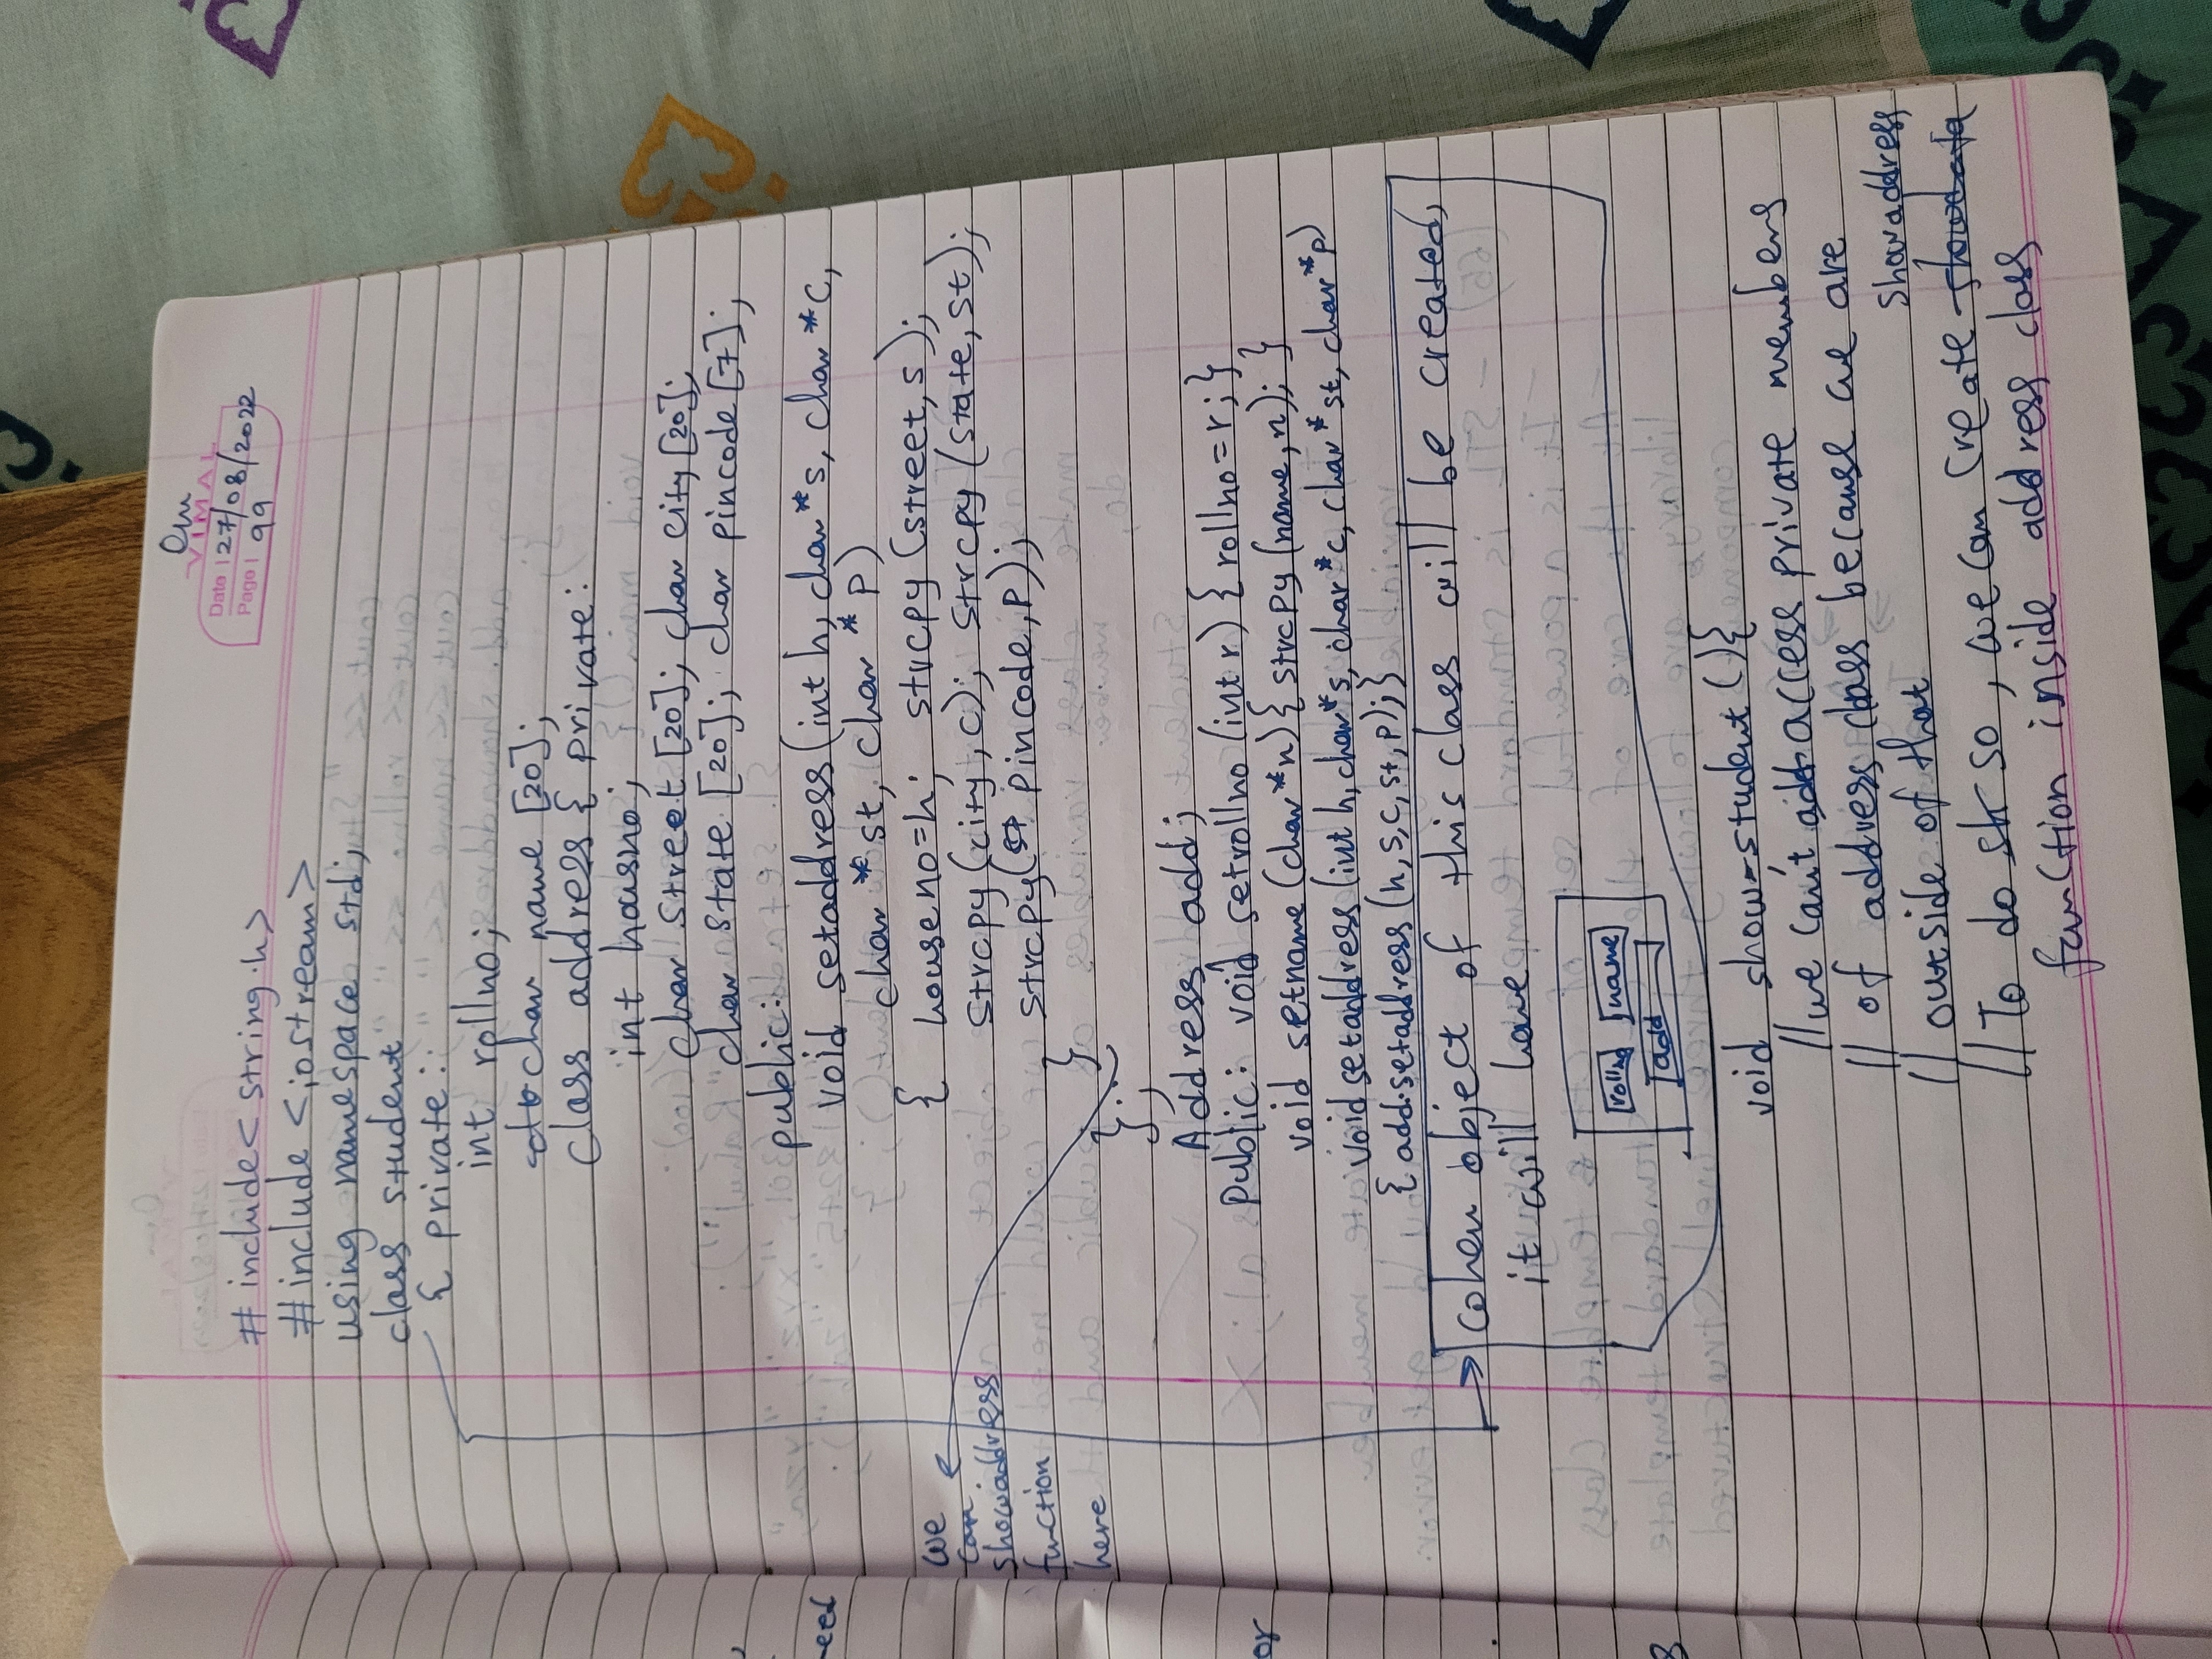 Om
VIMAL
Date 27/08/2022
Page 99
# include< string.h>
# include <iostream>
using namespace std;
class student
{ private:
int rollno;
char name [20];
class address { private:
int housno;
char street [20]; char city [20];
char state [20]; char pincode [7];
public:
void setaddress (int h, char *s, char *c,
char *st, char *p)
{ houseno=h; strcpy (street, s);
strcpy (city, c); strcpy (state, st);
strcpy( pincode, p);
}
};
we
can
showaddress
function
here
Address add;
Public: void setrollno (int r) { rollno=r; }
void setname (char *n) { strcpy (name, n); }
void setaddress (int h, char *s, char *c, char *st, char *p)
{ add.setaddress (h, s, c, st, p); }
When object of this class will be created,
it will have
rollno name
add
void show-student () {
// we can't access private members
// of address class because we are
// outside of that
// To do so, we can create showaddress
function inside address class
eed
or